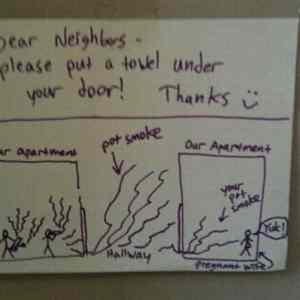 Dear Neighbors -
please put a towel under
your door! Thanks
Your apartment
pot smoke
Our Apartment
your
pot
smoke
Yuk!
Hallway
pregnant wife